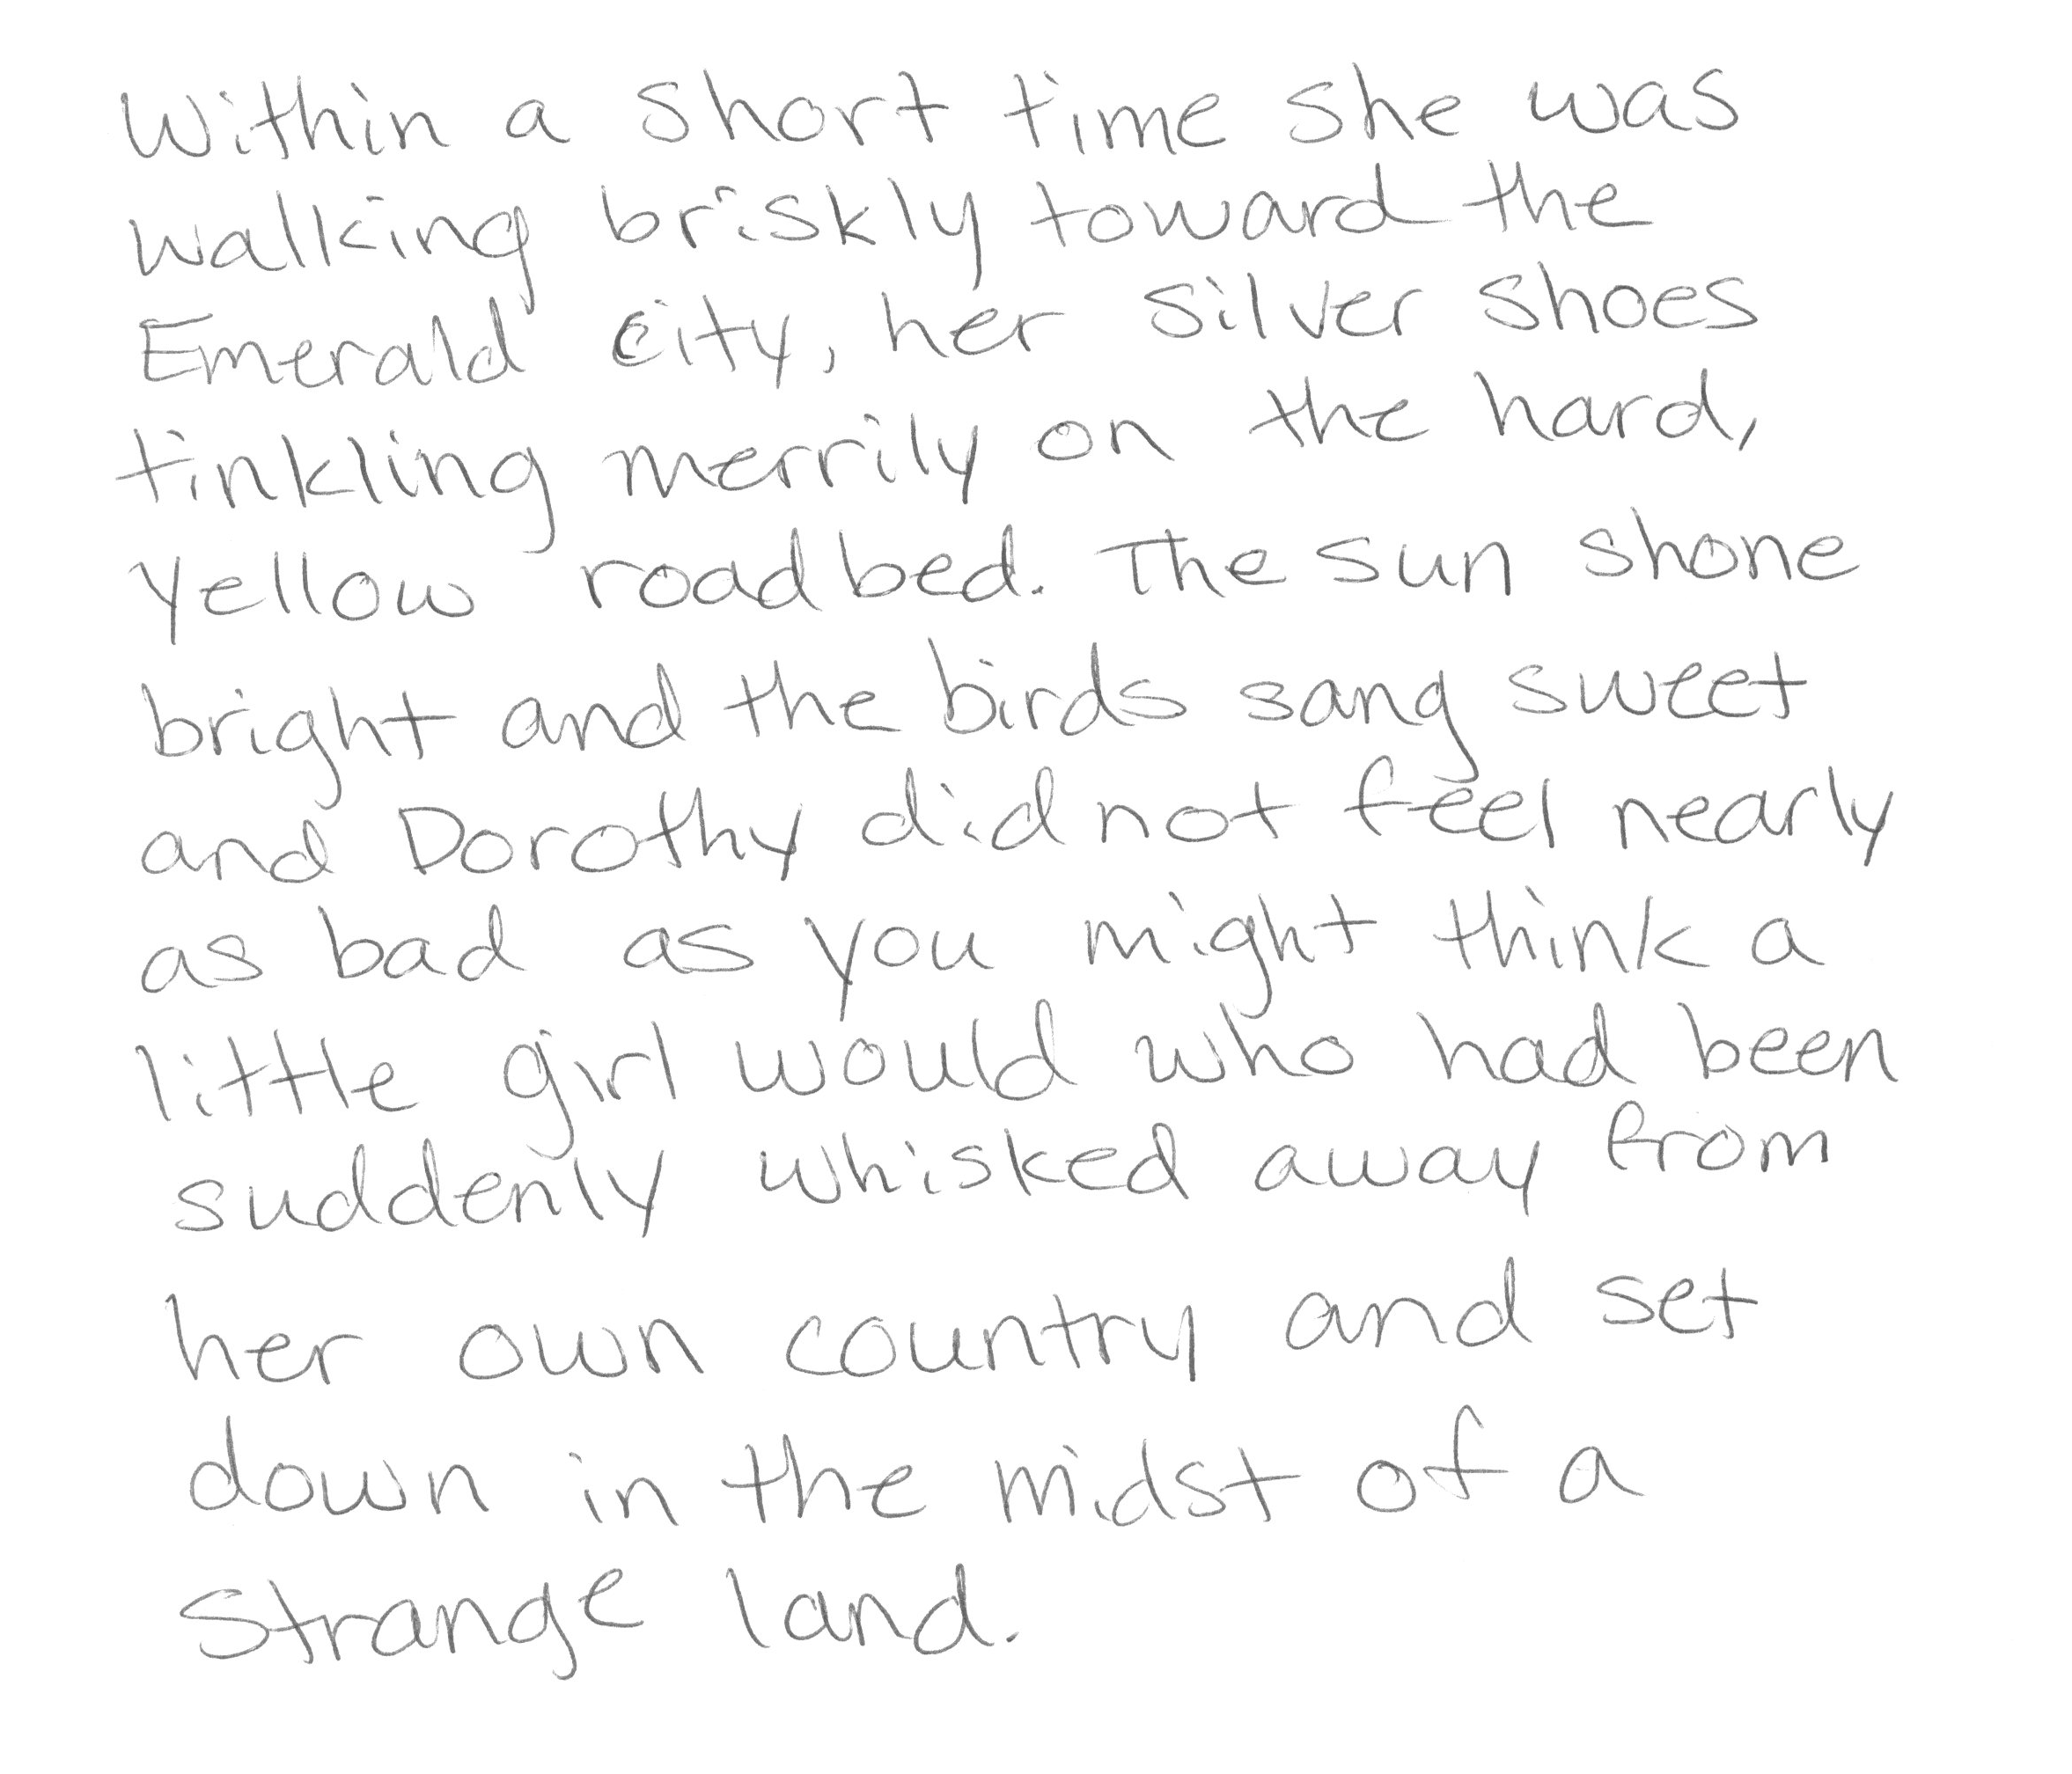 Within a short time she was
walking briskly toward the
Emerald City, her silver shoes
tinkling merrily on the hard,
yellow roadbed. The sun shone
bright and the birds sang sweet
and Dorothy did not feel nearly
as bad as you might think a
little girl would who had been
suddenly whisked away from
her own country and set
down in the midst of a
strange land.